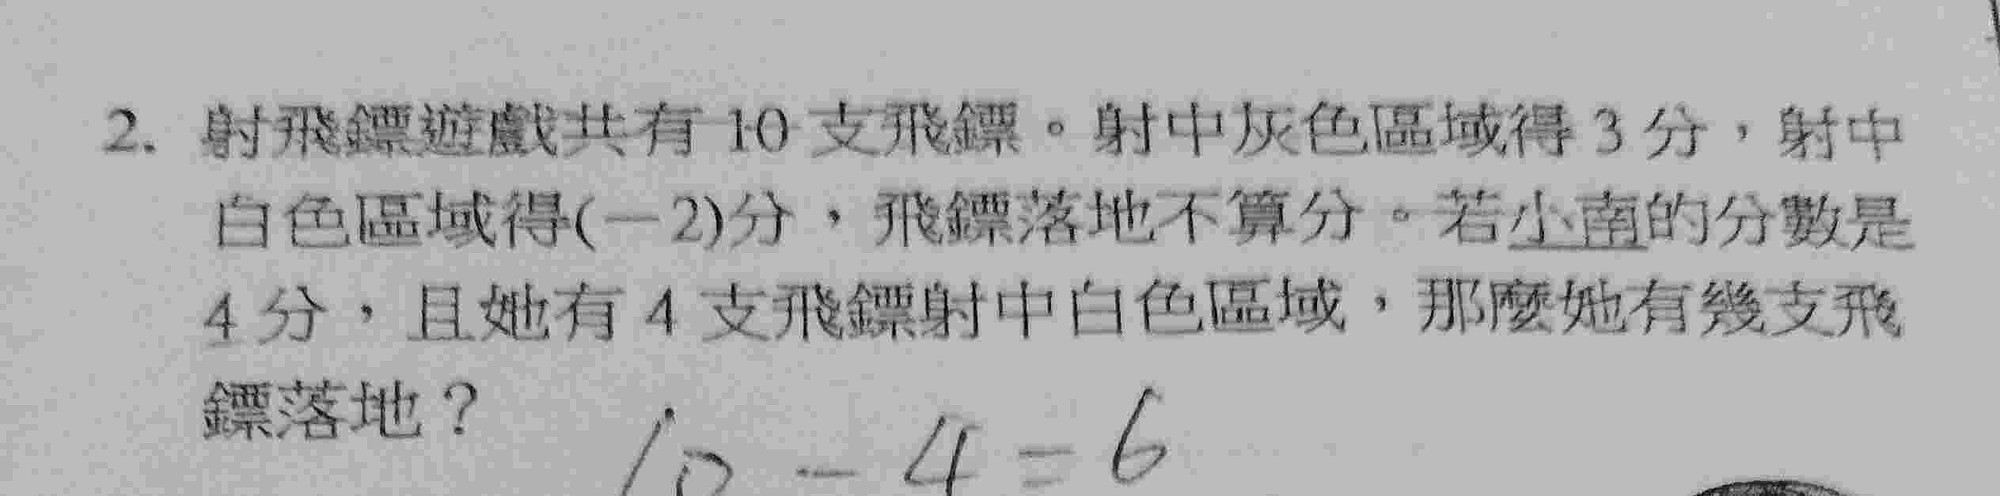 2. 射飛鏢遊戲共有 10 支飛鏢。射中灰色區域得 3 分，射中
白色區域得(－2)分，飛鏢落地不算分。若小南的分數是
4 分，且她有 4 支飛鏢射中白色區域，那麼她有幾支飛
鏢落地？
10 － 4 = 6